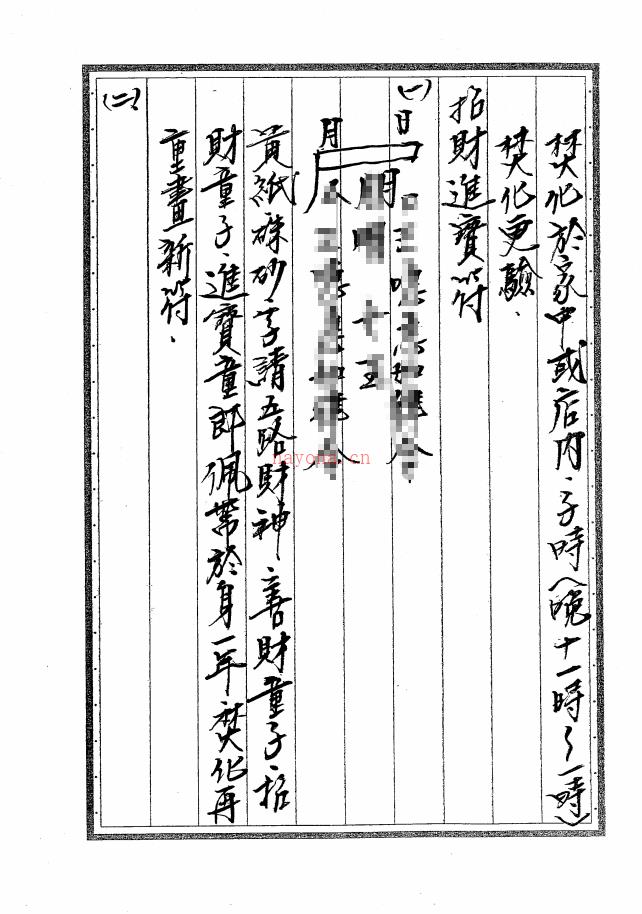 焚化於家中或店内、子時（晚十一時～一時）
焚化更驗、
招財進寶符
(一)
日
月
黄紙硃砂字請五路財神、善財童子、招
財童子、進寶童郎佩帶於身一年、焚化再
重畫新符、
(二)
nayona.cn